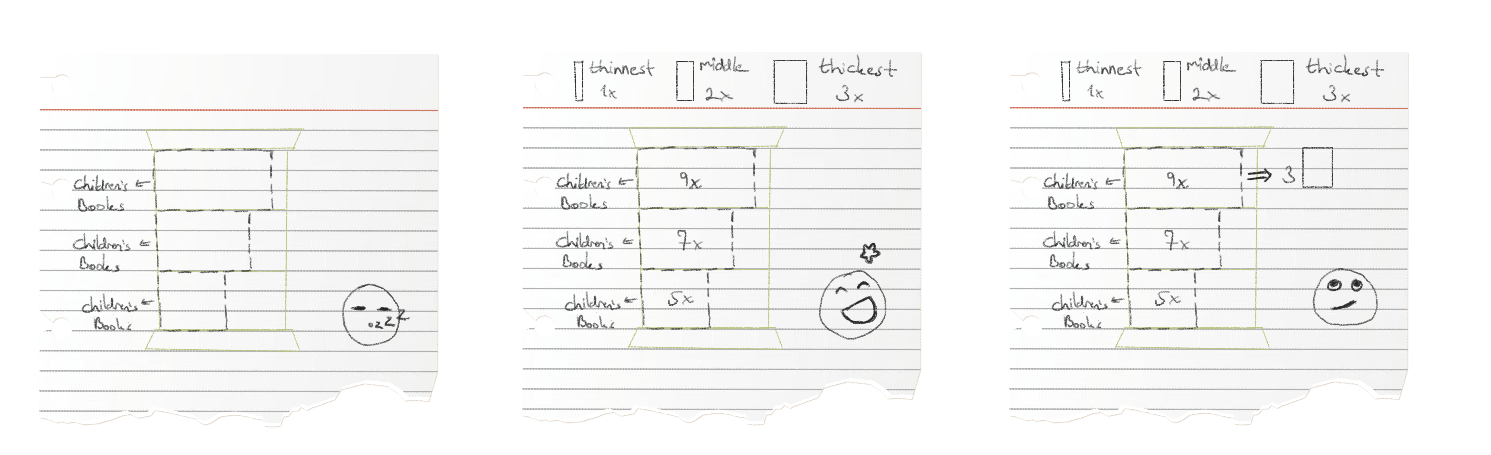 Children's
Books
Children's
Books
Children's
Books
ozzz
thinnest
1x
middle
2x
thickest
3x
Children's
Books
9x
Children's
Books
7x
Children's
Books
5x
thinnest
1x
middle
2x
thickest
3x
Children's
Books
9x ⇒ 3
Children's
Books
7x
Children's
Books
5x